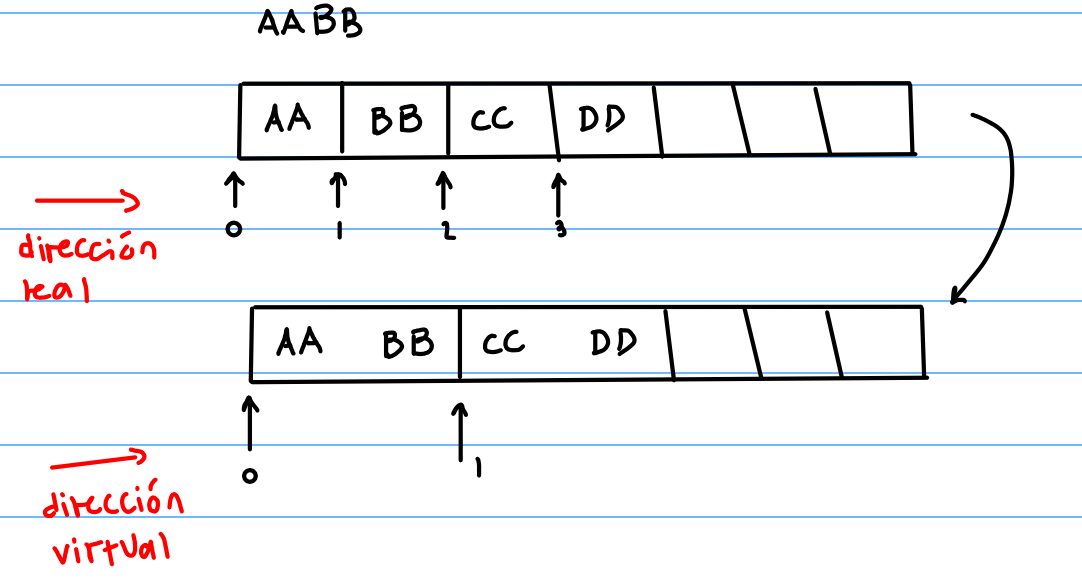 AABB
AA BB CC DD
0 1 2 3
dirección
real
AA BB CC DD
0 1
dirección
virtual